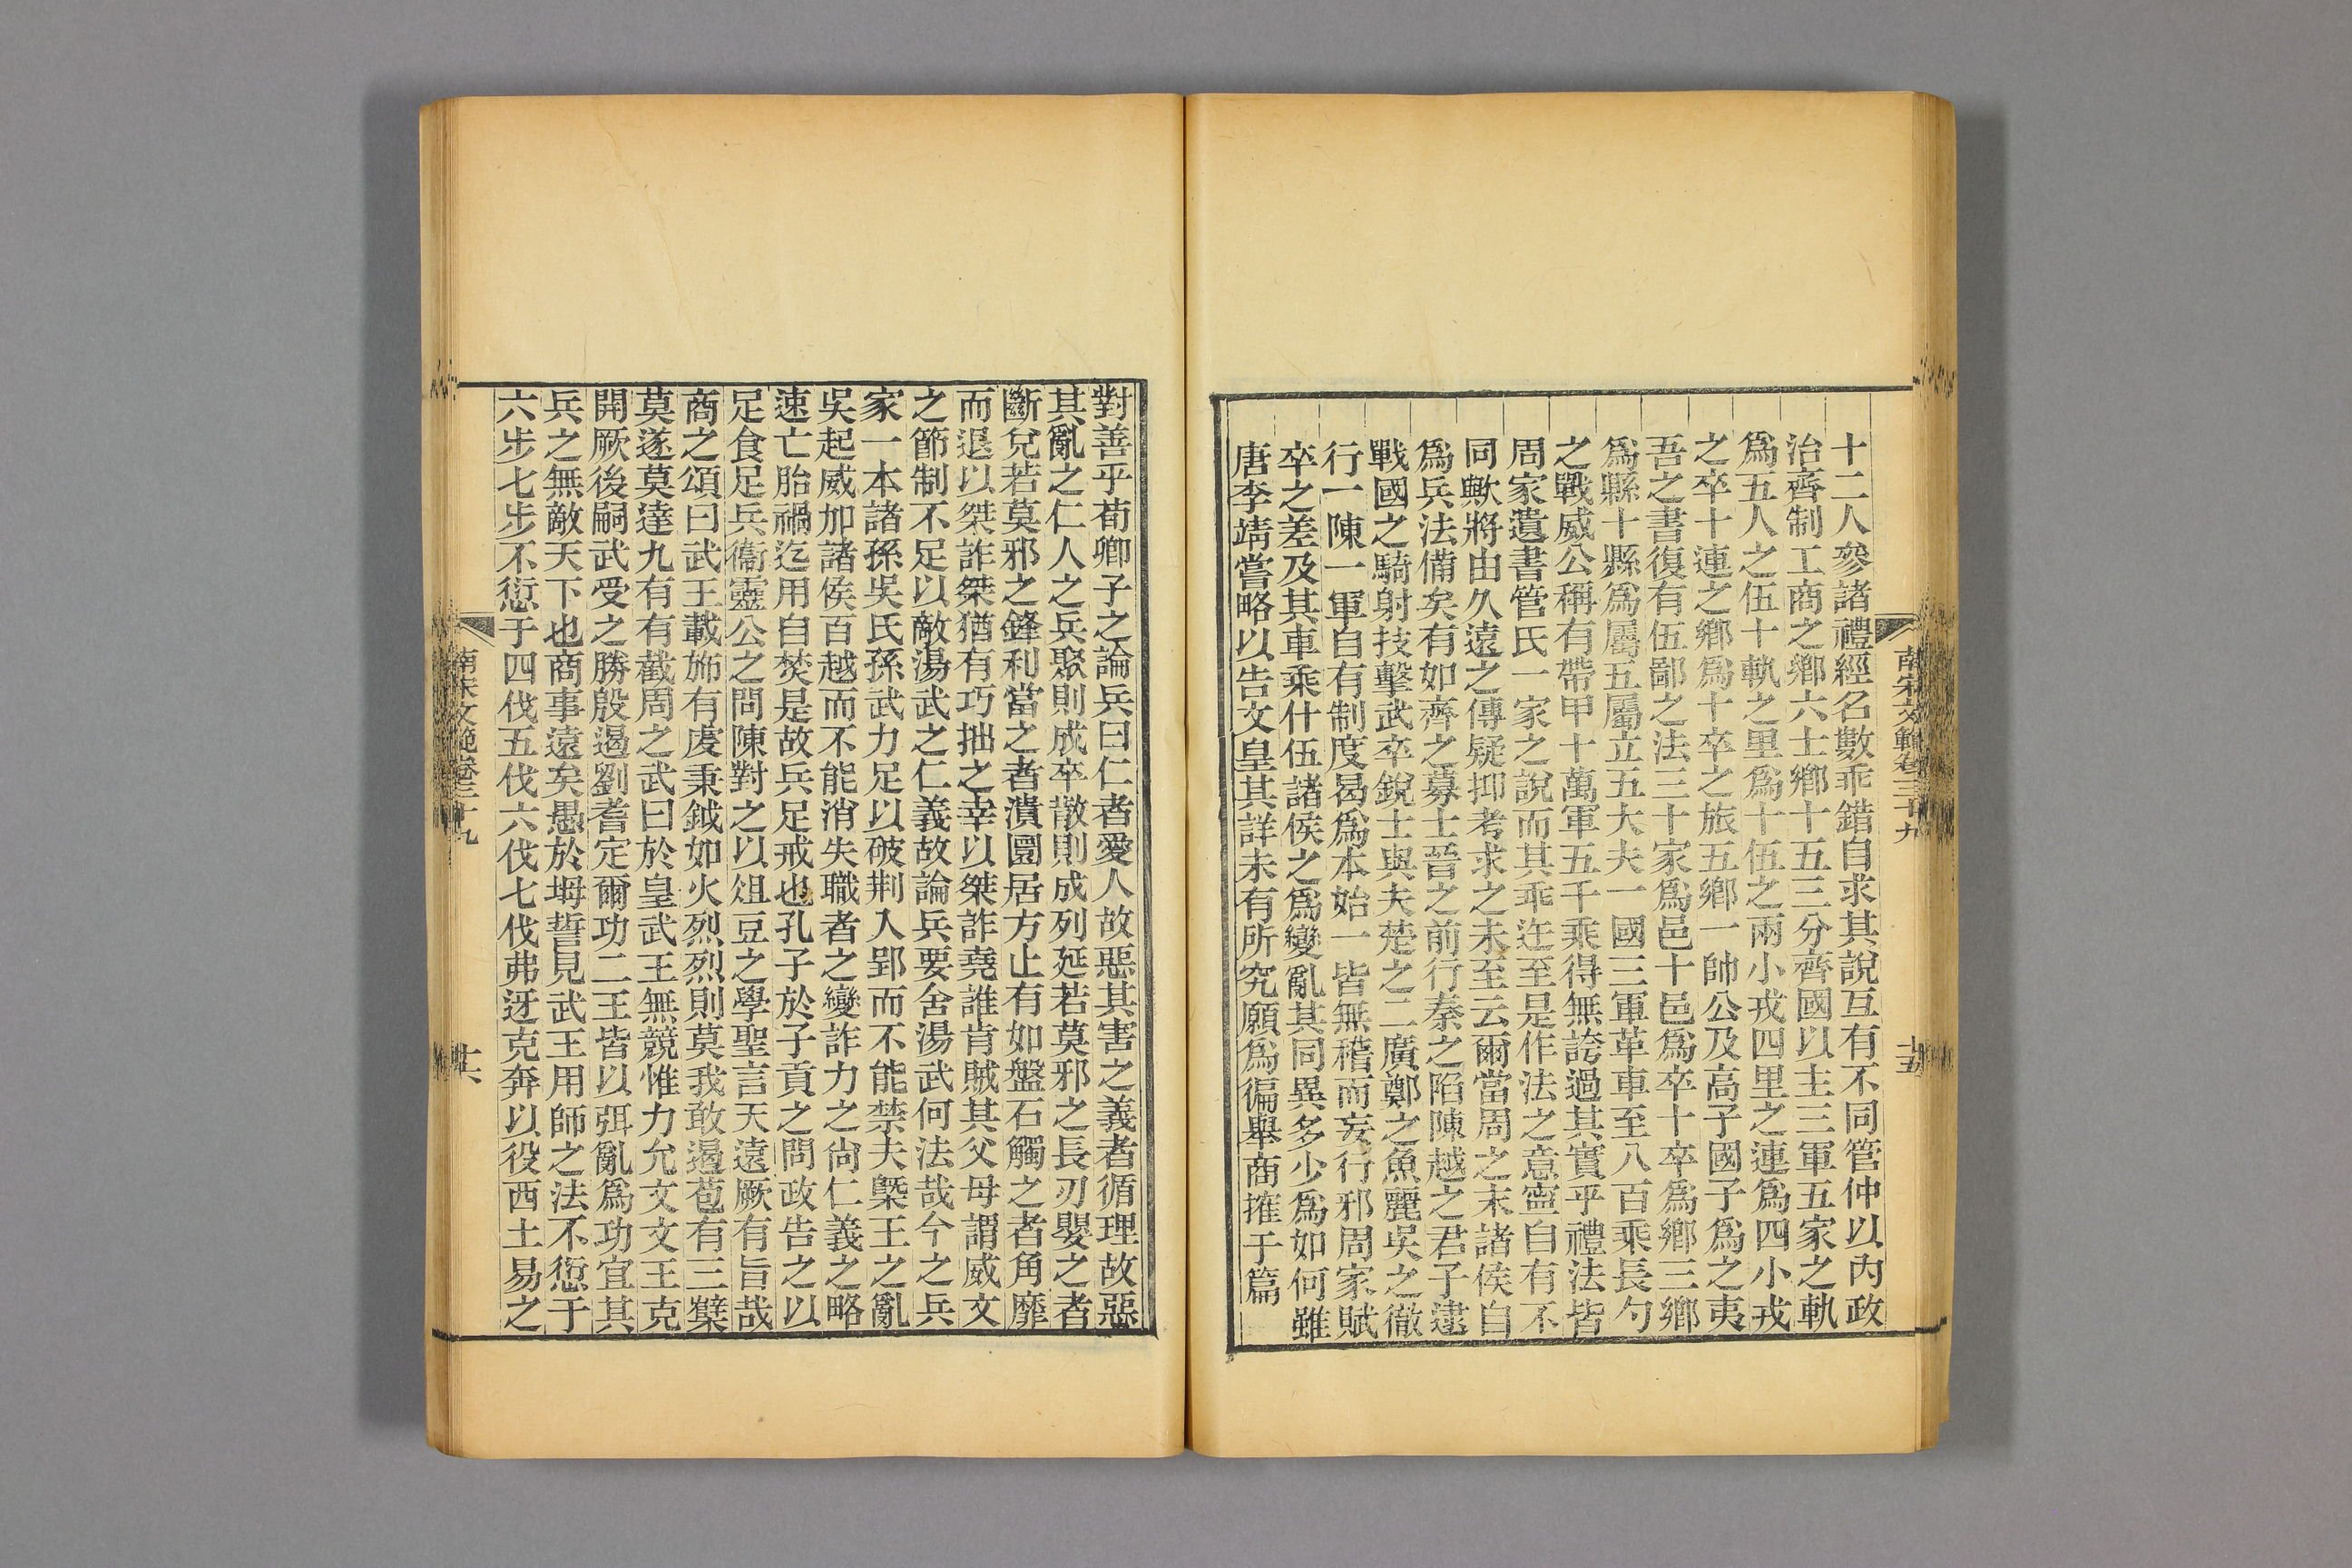 南宋文範卷三十九
十五
十二人參諸禮經名數乖錯自求其說互有不同管仲以內政
治齊制工商之鄉六士鄉十五三分齊國以主三軍五家之軌
爲五人之伍十軌之里爲十伍之兩小戎四里之連爲四小戎
之卒十連之鄉爲十卒之旅五鄉一帥公及高子國子爲之夷
吾之書復有伍鄙之法三十家爲邑十邑爲卒十卒爲鄉三鄉
爲縣十縣爲屬五屬立五大夫一國三軍革車至八百乘長勺
之戰威公稱有帶甲十萬軍五千乘得無誇過其實乎禮法皆
周家遺書管氏一家之說而其乖迕至是作法之意寧自有不
同歟將由久遠之傳疑抑考求之未至云爾當周之末諸侯自
爲兵法備矣有如齊之募士晉之前行秦之陷陳越之君子逮
戰國之騎射技擊武卒銳士與夫楚之二廣鄭之魚麗吳之徹
行一陳一軍自有制度曷爲本始一皆無稽而妄行邪周家賦
卒之差及其車乘什伍諸侯之爲變亂其同異多少爲如何雖
唐李靖嘗略以告文皇其詳未有所究願爲徧舉商搉于篇
對善乎荀卿子之論兵曰仁者愛人故惡其害之義者循理故惡
其亂之仁人之兵聚則成卒散則成列延若莫邪之長刃嬰之者
斷兌若莫邪之鋒利當之者潰圜居方止有如盤石觸之者角靡
而退以桀詐桀猶有巧拙之幸以桀詐堯誰肯賊其父母謂威文
之節制不足以敵湯武之仁義故論兵要舍湯武何法哉今之兵
家一本諸孫吳氏孫武力足以破荆入郢而不能禁夫槩王之亂
吳起威加諸侯百越而不能消失職者之變詐力之尙仁義之略
速亡胎禍迄用自焚是故兵足戒也孔子於子貢之問政告之以
足食足兵衞靈公之問陳對之以俎豆之學聖言天遠厥有旨哉
商之頌曰武王載斾有虔秉鉞如火烈烈則莫我敢遏苞有三櫱
莫遂莫達九有有截周之武曰於皇武王無競惟力允文文王克
開厥後嗣武受之勝殷遏劉耆定爾功二王皆以弭亂爲功宜其
兵之無敵天下也商事遠矣愚於坶誓見武王用師之法不愆于
六步七步不愆于四伐五伐六伐七伐弗迓克奔以役西土易之
南宋文範卷三十九
十六